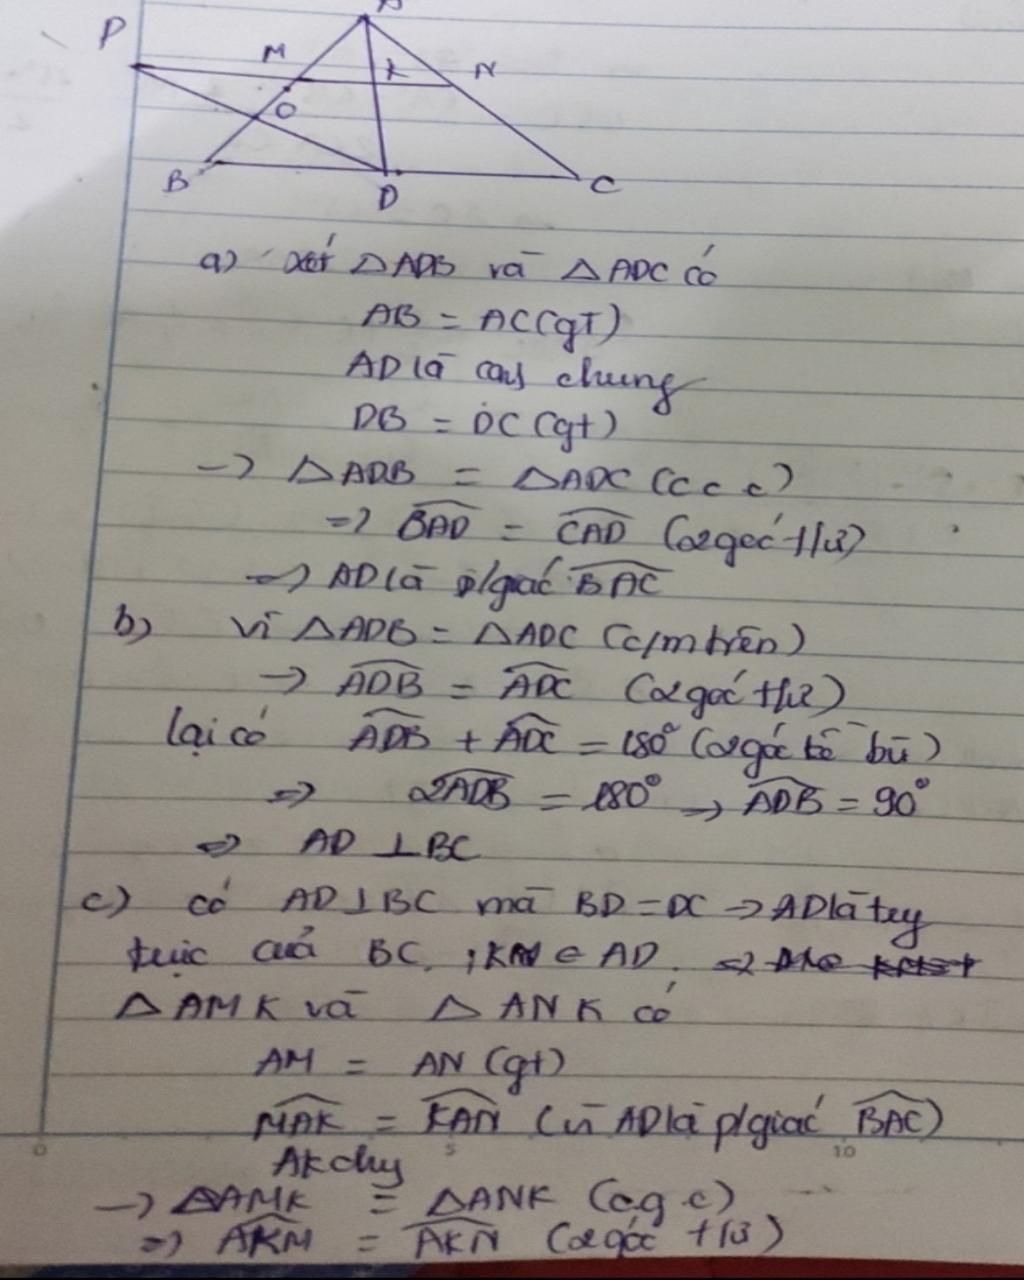 A
P
M
K
N
O
B
D
C
a) xét △ADB và △ADC có
AB = AC (gT)
AD là cạnh chung
DB = DC (gt)
→ △ADB = △ADC (c c c)
⇒ \widehat{BAD} = \widehat{CAD} (2 góc t/ứ)
⇒ AD là p/giác \widehat{BAC}
b) vì △ADB = △ADC (c/m trên)
→ \widehat{ADB} = \widehat{ADC} (2 góc t/ứ)
lại có \widehat{ADB} + \widehat{ADC} = 180° (2 góc kề bù)
⇒ 2\widehat{ADB} = 180° → \widehat{ADB} = 90°
⇒ AD ⊥ BC
c) có AD ⊥ BC mà BD = DC → AD là tug
trực của BC, ; K ∈ AD. ⇒
△AMK và △ANK có
AM = AN (gt)
\widehat{MAK} = \widehat{KAN} (vì AD là p/giác \widehat{BAC})
0 5 10
AK chug
→ △AMK = △ANK (c g c)
⇒ \widehat{AKM} = \widehat{AKN} (2 góc t/ứ)